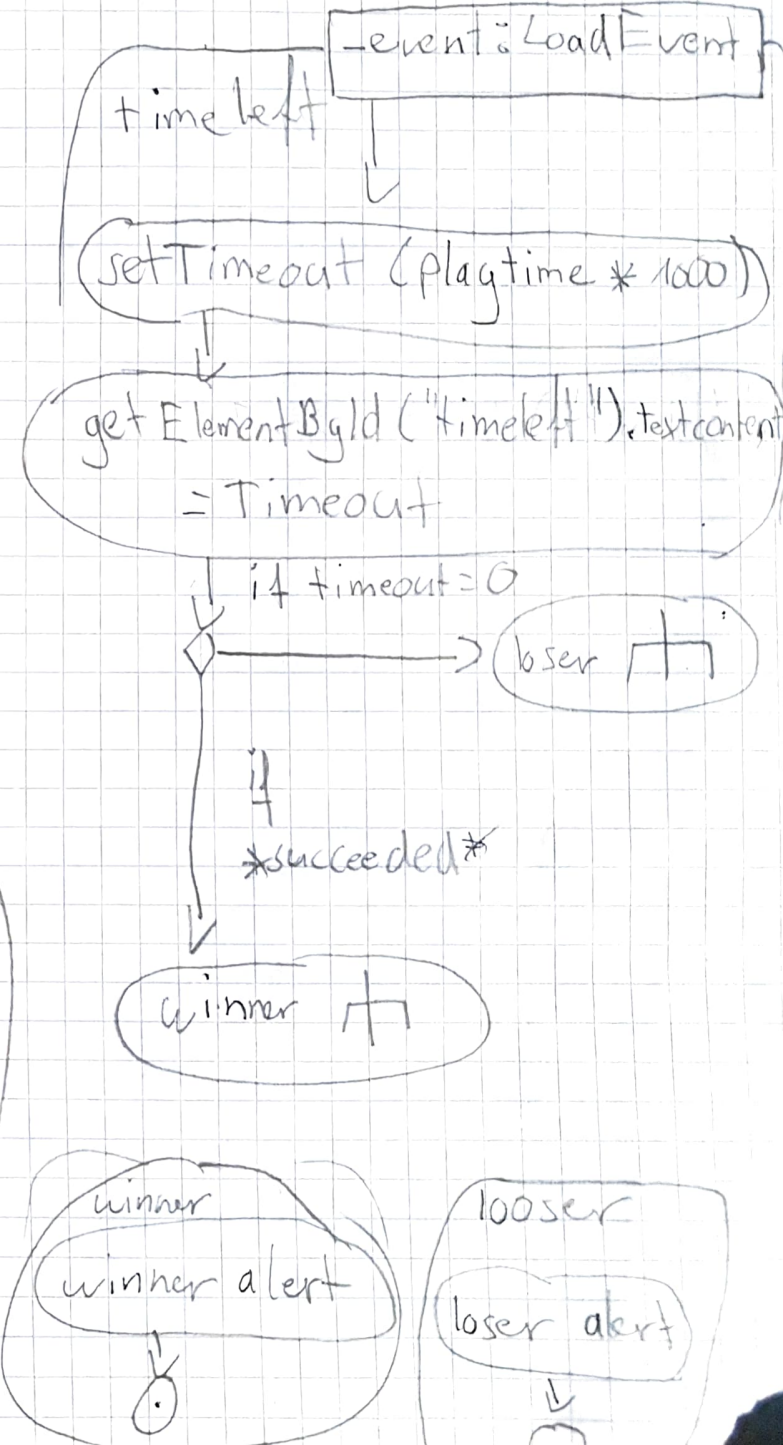 -event:LoadEvent
timeleft
setTimeout (playtime * 1000)
getElementById ("timeleft").textcontent
= Timeout
if timeout = 0
loser
if
*succeeded*
winner
winner
looser
winner alert
loser alert